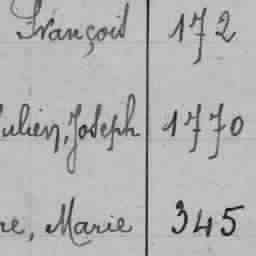 François 172
Julien, Joseph 1770
re, Marie 345